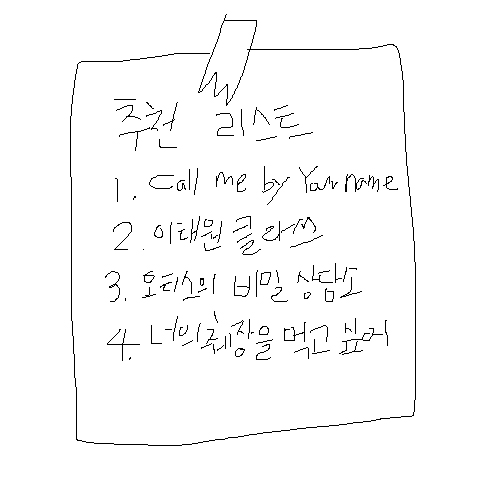 추천 리스트
1. Call me by Your name
2. 이태원 클라쓰
3. 오티스의 비밀 상담소
4. 너의 췌장을 먹고 싶어